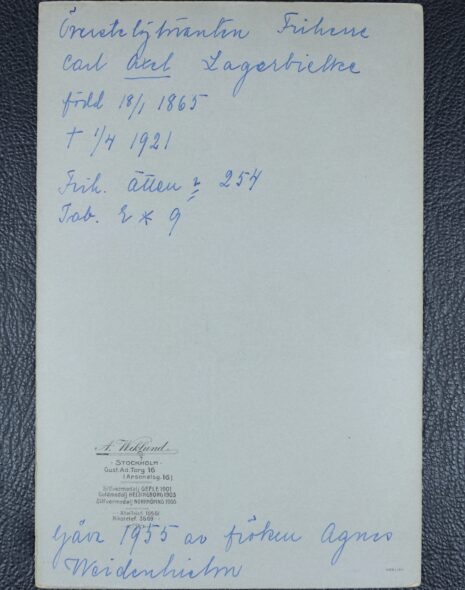 Överstelöjtnanten Friherre
Carl Axel Lagerbielke
född 18/1 1865
† 1/4 1921
Frih. ätten 254
Tab. 9
A. Wiklund
- STOCKHOLM -
Gust. Ad. Torg 16
(Arsenalsg. 16)
Silfvermedalj GEFLE 1901
Guldmedalj HELSINGBORG 1903
Silfvermedalj NORRKÖPING 1906
Gåva 1955 av fröken Agnes
Weidenhielm